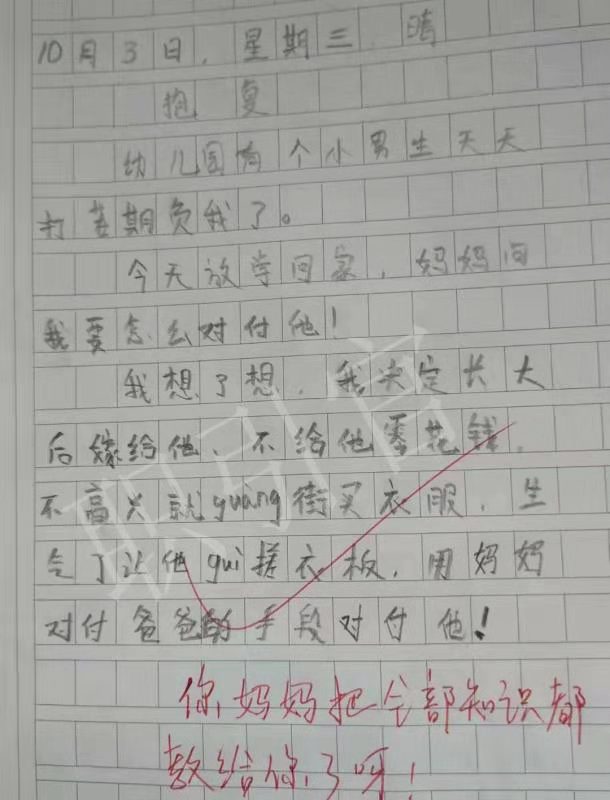 10月3日,星期三 晴
抱复
幼儿园有个小男生天天
打着期负我了。
今天放学回家,妈妈问
我要怎么对付他!
我想了想,我决定长大
后嫁给他、不给他零花钱,
不高兴就guàng街买衣服,生
气了让他gui搓衣板,用妈妈
对付爸爸的手段对付他!
你妈妈把全部知识都
教给你了呀!
职引官